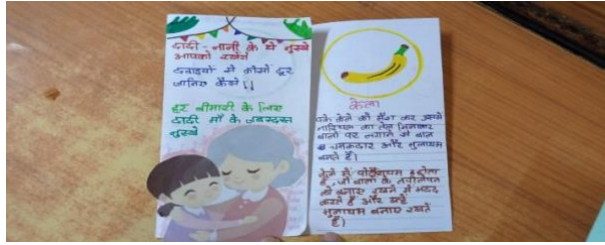 दादी - नानी के ये नुस्खे
आपको रखेंगे
दवाइयों से कोसों दूर
जानिए कैसे !!
हर बीमारी के लिए
दादी माँ के जबरदस्त
नुस्खे
केला
पके केले को मैश कर उसमें
नारियल का तेल मिलाकर
बालों पर लगाने से बाल
चमकदार और मुलायम
बनते हैं।
केले में पोटैशियम होता
है, जो बालों के
को बनाए रखने में मदद
करते हैं और
मुलायम बनाए रखते
हैं।